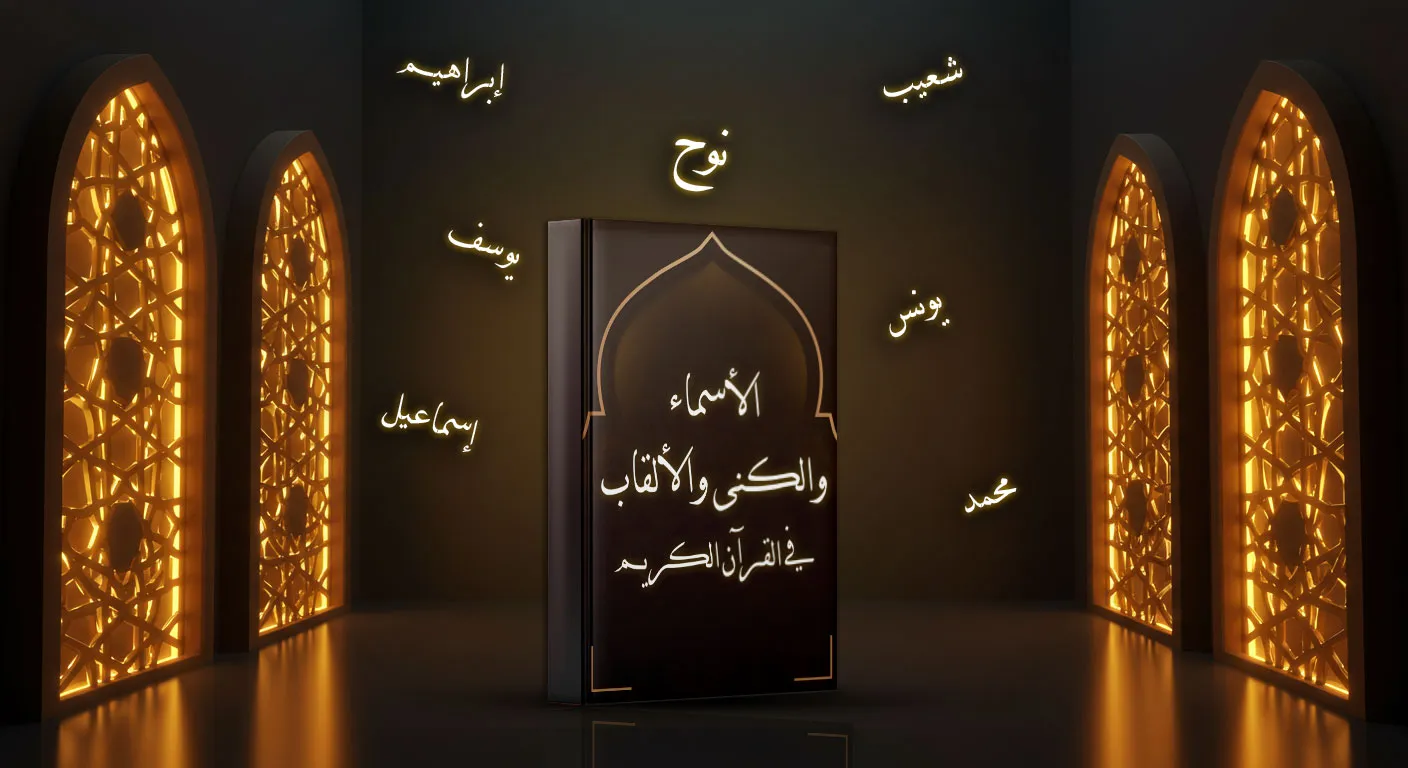 شعيب
إبراهيم
نوح
يوسف
يونس
إسماعيل
محمد
الأسماء
والكنى والألقاب
في القرآن الكريم